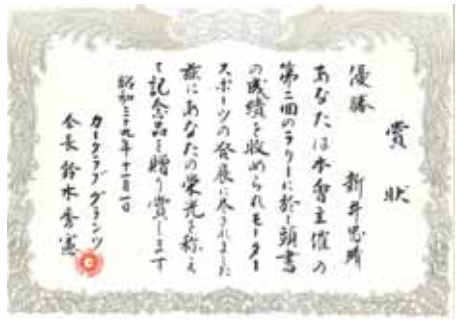 賞状
優勝 新井
あなたは本會主催の
第二回のラリーに於し頭書
の成績を収められモーター
スポーツの発展に尽されました
茲にあなたの栄光を称え
て記念品を贈り賞します
昭和三十九年十一月一日
カークラブグランツ
会長 鈴木秀憲